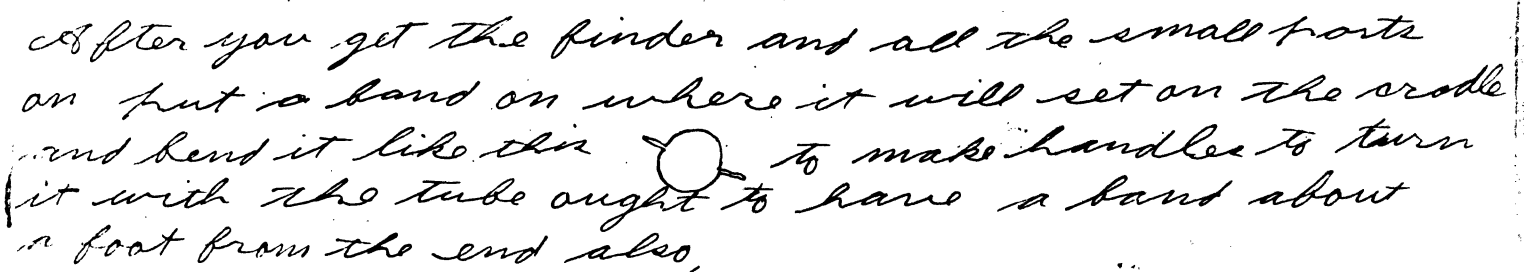 After you get the finder and all the small parts
on put a band on where it will set on the cradle
and bend it like this to make handles to turn
it with the tube ought to have a band about
a foot from the end also,